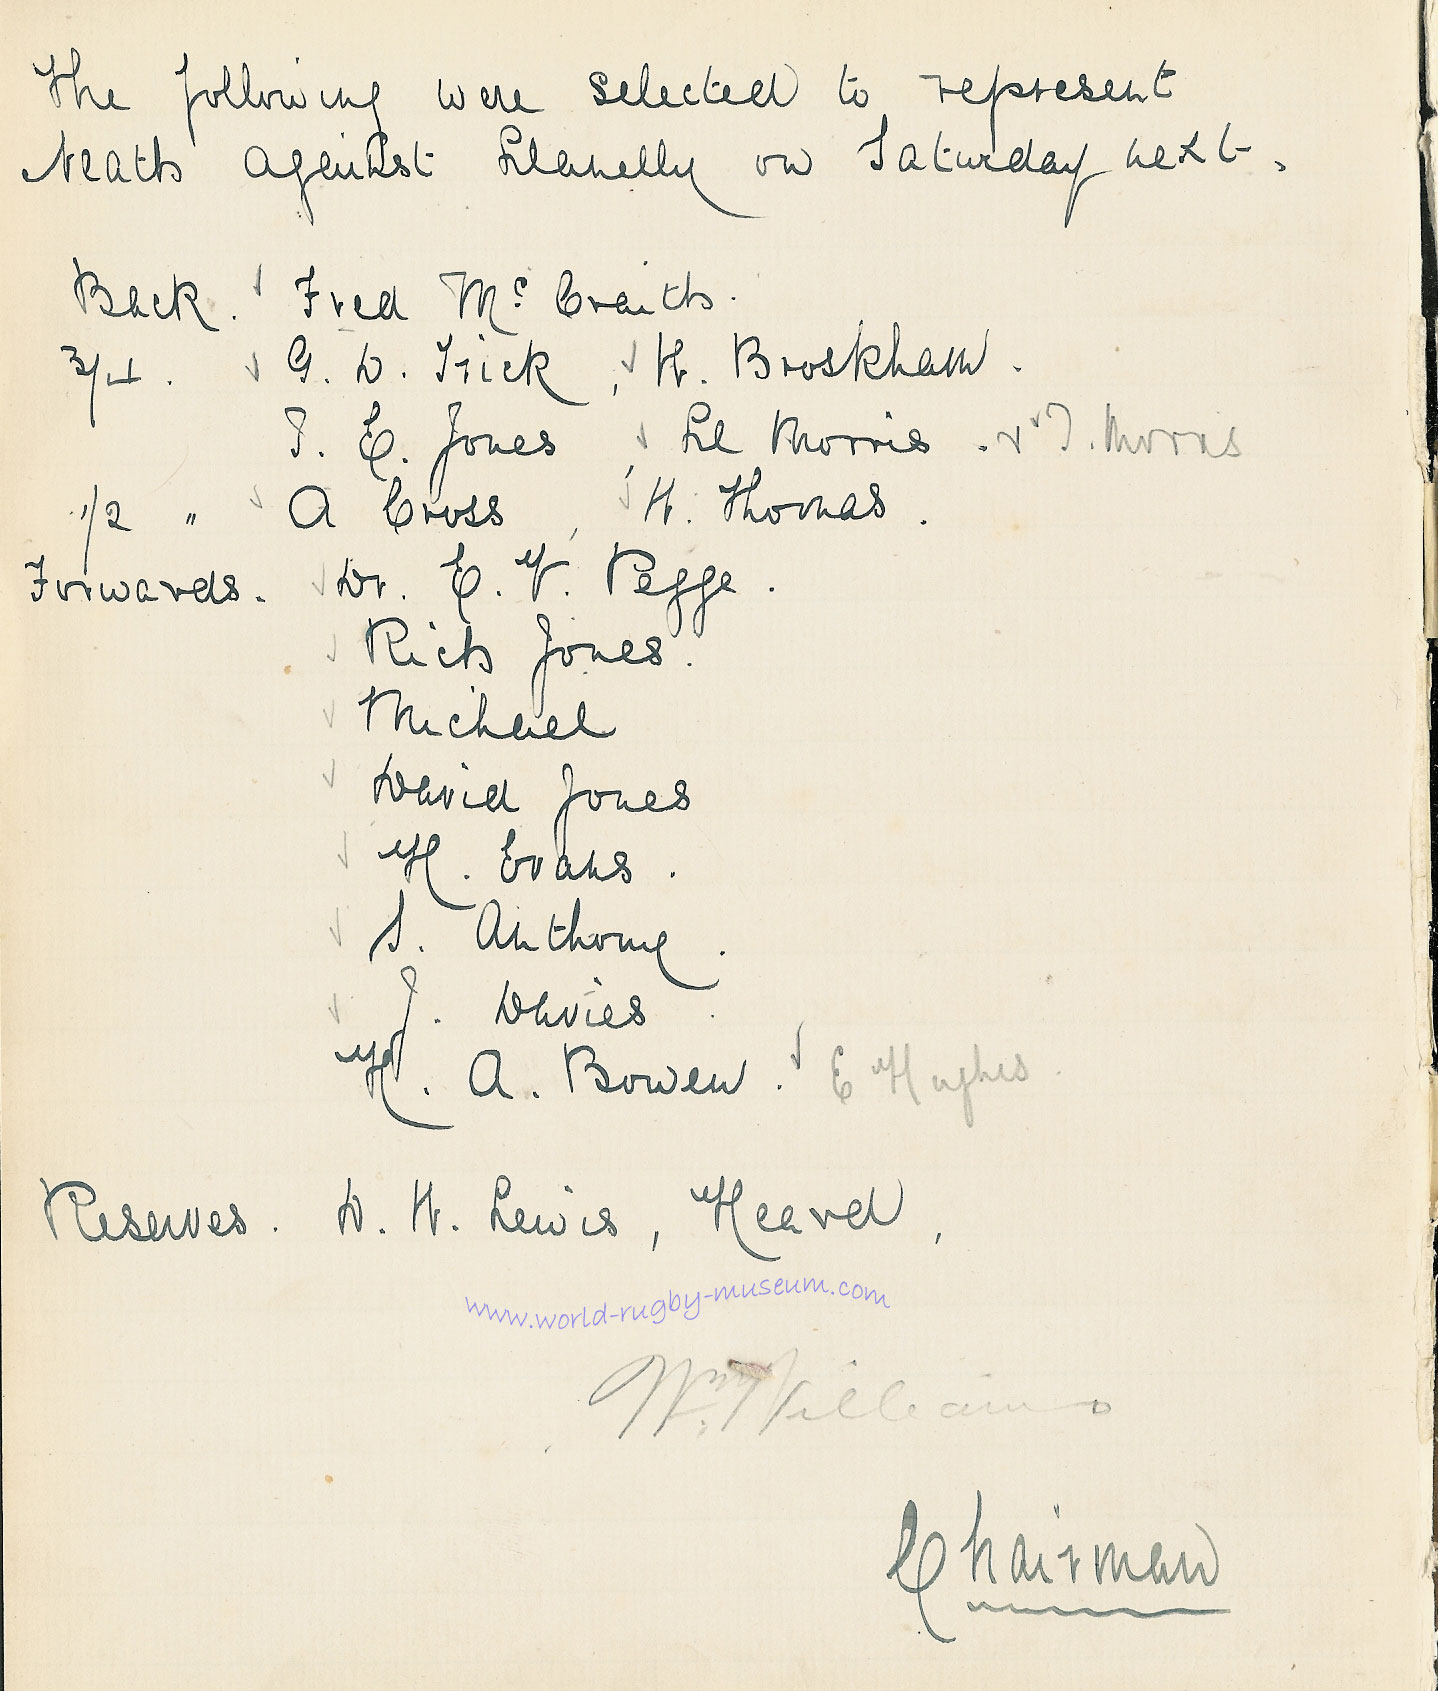 The following were selected to represent
Neath against Llanelly on Saturday next.
Back. Fred Mc Craith.
3/4. G. D. Trick, W. Broskham.
T. E. Jones, Ll Morris. T. Morris
1/2 " A Cross, W. Thomas.
Forwards. Dr. E. V. Pegge.
Rich Jones.
Michael
David Jones
H. Evans.
S. Anthony.
J. Davies.
H. A. Bowen. E Hughes.
Reserves. D. W. Lewis, Heard,
www.world-rugby-museum.com
Wm. Williams
Chairman